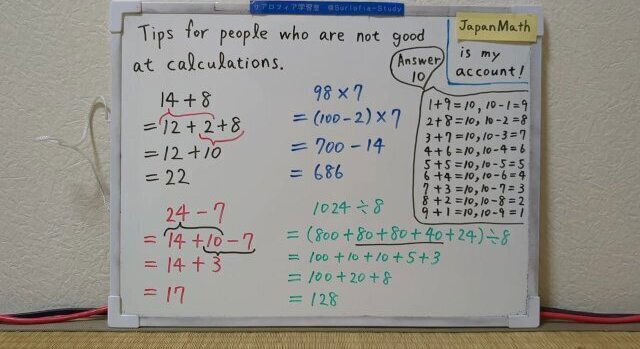 サアロフィア学習室 @Surlofia-Study
Tips for people who are not good
at calculations.
JapanMath
is my
account!
Answer
10
1+9=10, 10-1=9
2+8=10, 10-2=8
3+7=10, 10-3=7
4+6=10, 10-4=6
5+5=10, 10-5=5
6+4=10, 10-6=4
7+3=10, 10-7=3
8+2=10, 10-8=2
9+1=10, 10-9=1
14+8
=12+2+8
=12+10
=22
98×7
=(100-2)×7
=700-14
=686
24-7
=14+10-7
=14+3
=17
1024÷8
=(800+80+80+40+24)÷8
=100+10+10+5+3
=100+20+8
=128